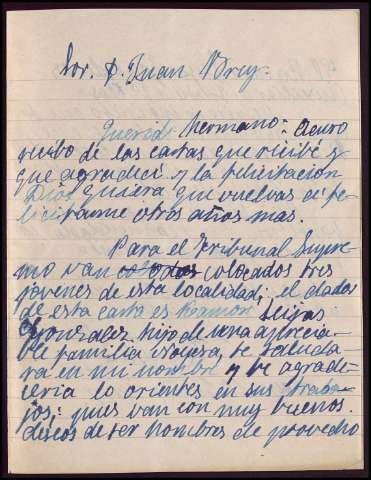 Sor. D. Juan Brey.
Querido hermano: Acuso
recibo de las cartas que recibí y
que agradecí y la felicitación
Dios quiera que vuelvas a fe-
licitarme otros años mas.
Para el Tribunal Supre-
mo van colocados tres
jovenes de esta localidad; el dador
de esta carta es Ramon Seijas
Gonzalez hijo de una aprecia-
ble familia te saluda-
ra en mi nombre y te agrade-
ceria lo orientes en sus traba-
jos; pues van con muy buenos
deseos de ser hombres de provecho